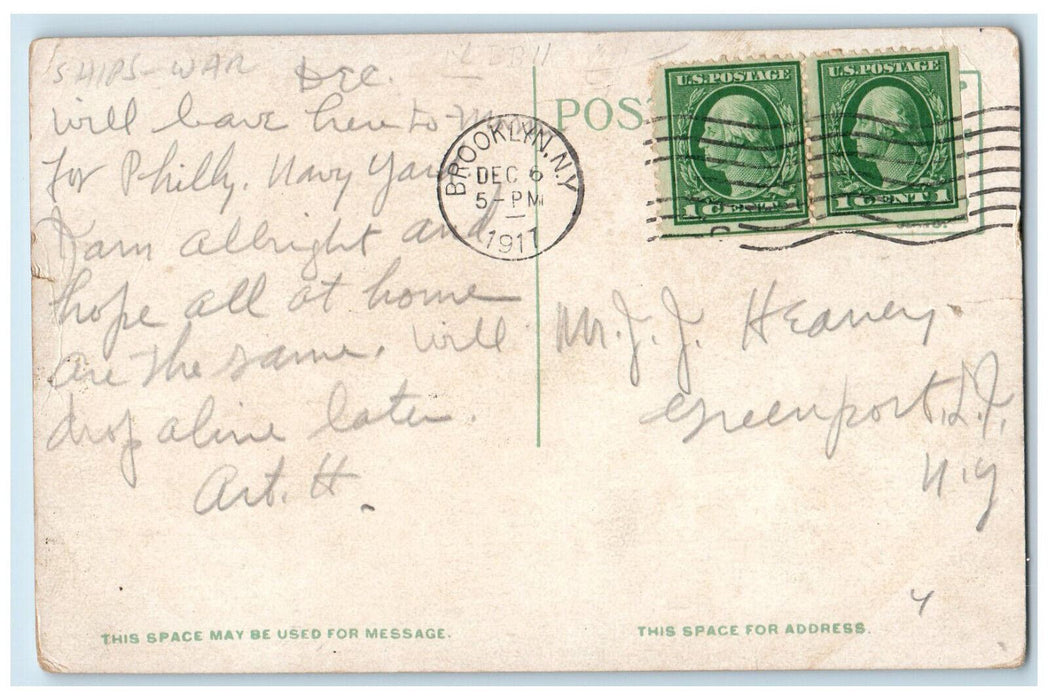 SHIPS-WAR Dec.
will leave here to-
for Philly. Navy Yard
I am allright and
hope all at home
are the same. Will
drop aline later.
Art. H.
POS
BROOKLYN, N.Y.
DEC 6
5-PM
1917
U.S. POSTAGE
1 CENT 1
U.S. POSTAGE
1 CENT 1
Mr. J. J. Heaney
Greenport. L.I.
N.Y
4
THIS SPACE MAY BE USED FOR MESSAGE.
THIS SPACE FOR ADDRESS.